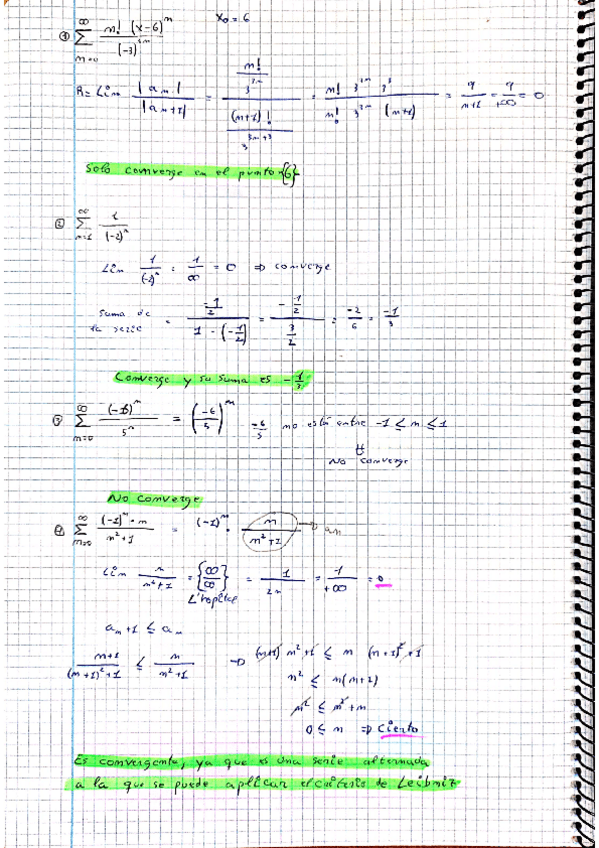 ① ∑_{n=0}^{∞} n! (x-6)^n / (-3)^{2n}   x₀ = 6
R = Lim |a_n| / |a_{n+1}| = (n! / 3^{2n}) / ((n+1)! / 3^{2n+3}) = n! 3^{2n} 3^3 / n! 3^{2n} (n+1) = 9/(n+1) = 9/+∞ = 0
Solo converge en el punto {6}
② ∑_{n=1}^{∞} 1/(-2)^n
Lim 1/(-2)^n = 1/∞ = 0 ⇒ converge
Suma de la serie = (-1/2) / (1 - (-1/2)) = (-1/2) / (3/2) = -2/6 = -1/3
Converge y su suma es -1/3
③ ∑_{n=0}^{∞} (-6)^n / 5^n = (-6/5)^n   -6/5 no está entre -1 ≤ n ≤ 1
⇓
No converge
No converge
④ ∑_{n=0}^{∞} (-1)^n · n / n²+1 = (-1)^n · n / n²+1 → an
Lim n / n²+1 = {∞/∞} = 1/2n = 1/+∞ = 0
L'hopital
a_{n+1} ≤ a_n
n+1 / (n+1)²+1 ≤ n / n²+1 ⇒ (n+1) n²+1 ≤ n (n+1)²+1
n² ≤ n(n+2)
n² ≤ n²+n
0 ≤ n ⇒ Cierto
Es convergente, ya que es una serie alternada
a la que se puede aplicar el criterio de Leibniz